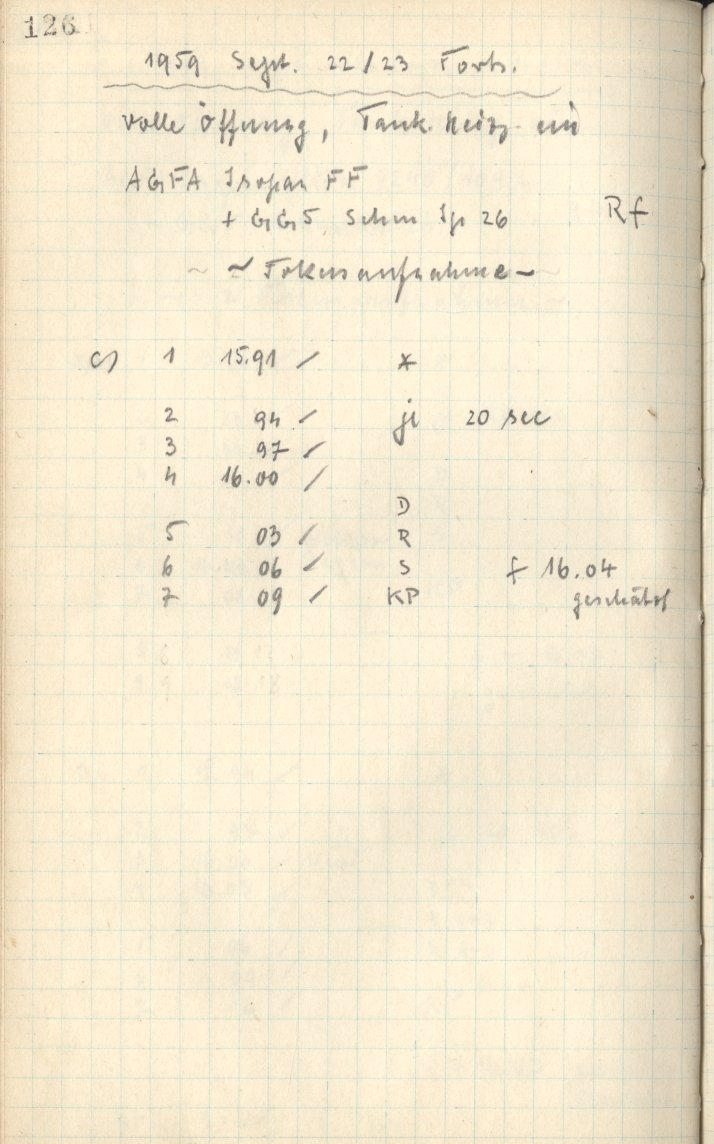 126
1959 Sept. 22/23 Forts.
volle Öffnung, Tauk. Heizg. ein
AGFA Isopan FF
+ GG5 Schm Sp 26 Rf
~ ~ Fokusaufnahme ~
c) 1 15.91 / *
2 94 / je 20 sec
3 97 /
4 16.00 /
D
5 03 / R
6 06 / S f 16.04
7 09 / KP geschätzt